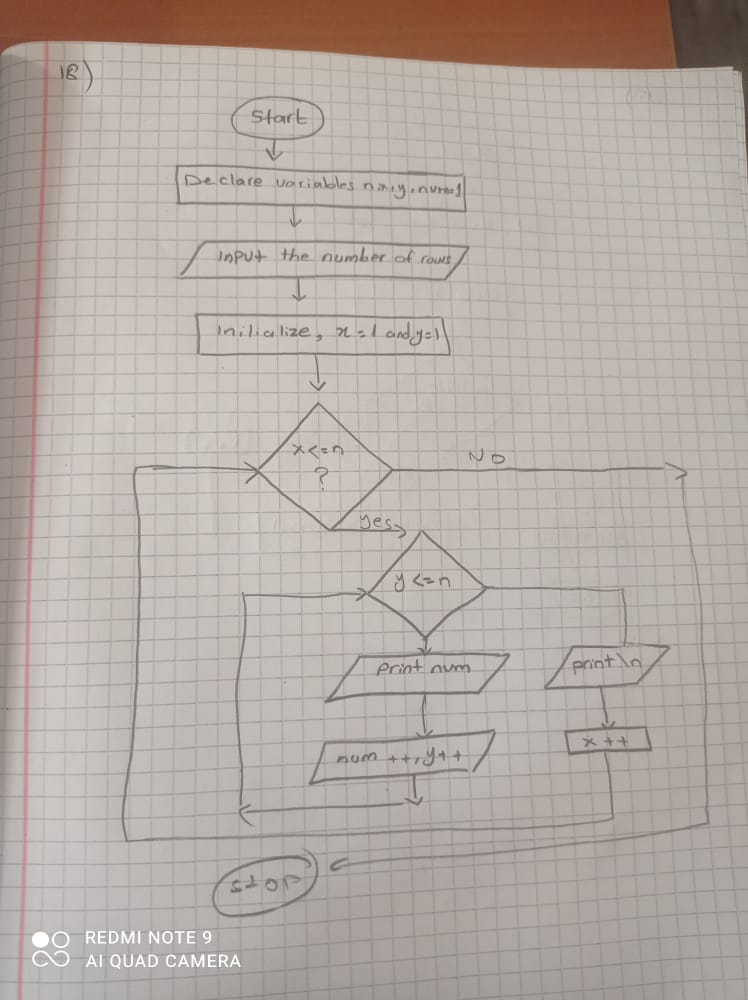 18)
Start
Declare variables n,x,y,num=1
Input the number of rows
Initialize, x=1 and y=1
x<=n
?
NO
yes
y<=n
print num
print \n
num ++, y++
x ++
stop
REDMI NOTE 9
AI QUAD CAMERA